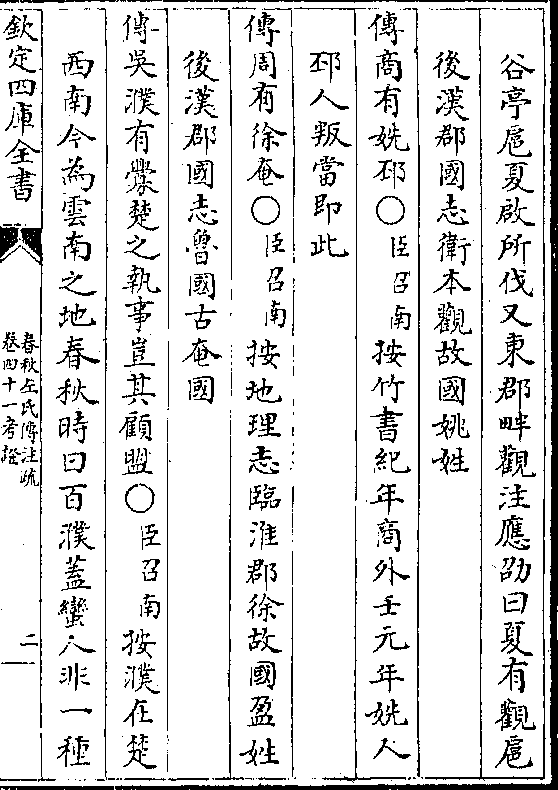 谷亭扈夏啟所伐又東郡畔觀注應劭曰夏有觀扈
後漢郡國志衛本觀故國姚姓
傳商有姺邳〇臣召南按竹書紀年商外壬元年姺人
邳人叛當即此
傳周有徐奄〇臣召南按地理志臨淮郡徐故國盈姓
後漢郡國志魯國古奄國
傳吳濮有釁楚之執事豈其顧盟〇臣召南按濮在楚
西南今為雲南之地春秋時曰百濮蓋蠻人非一種
欽定四庫全書
春秋左氏傳注疏
卷四十一考證
二